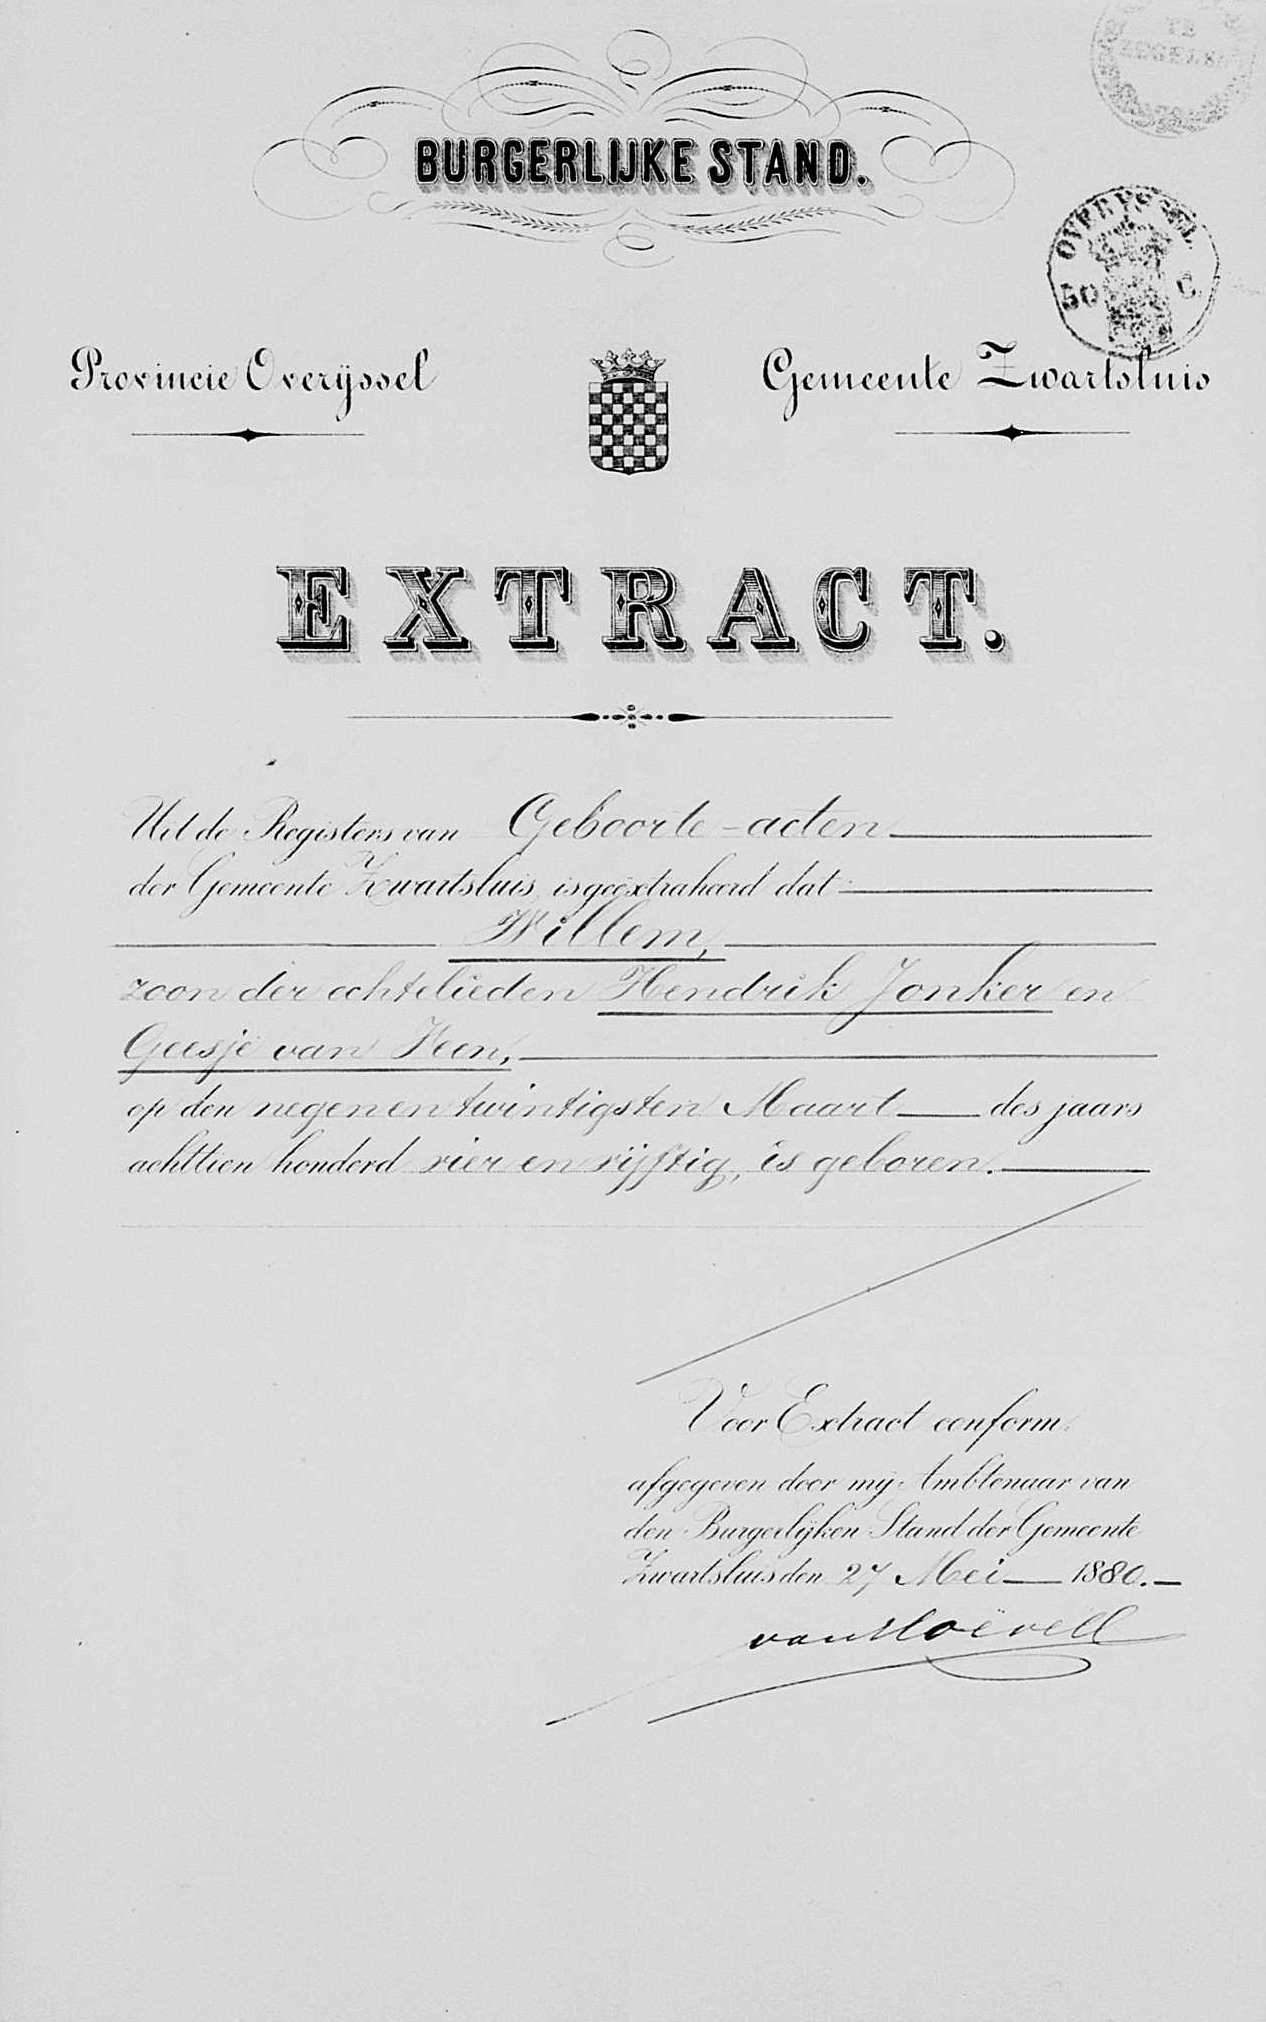 TE
BURGERLIJKE STAND.
OVERYSSEL
50 C.
Provincie Overijssel
Gemeente Zwartsluis
EXTRACT.
Uit de Registers van Geboorte-acten
der Gemeente Zwartsluis, is geëxtraheerd dat:
Willem,
zoon der echtelieden Hendrik Jonker en
Geesje van Heen,
op den negen en twintigsten Maart des jaars
achttien honderd vier en vijftig, is geboren.
Voor Extract conform,
afgegeven door mij Ambtenaar van
den Burgerlijken Stand der Gemeente
Zwartsluis den 27 Mei 1880.
van Hoëvell